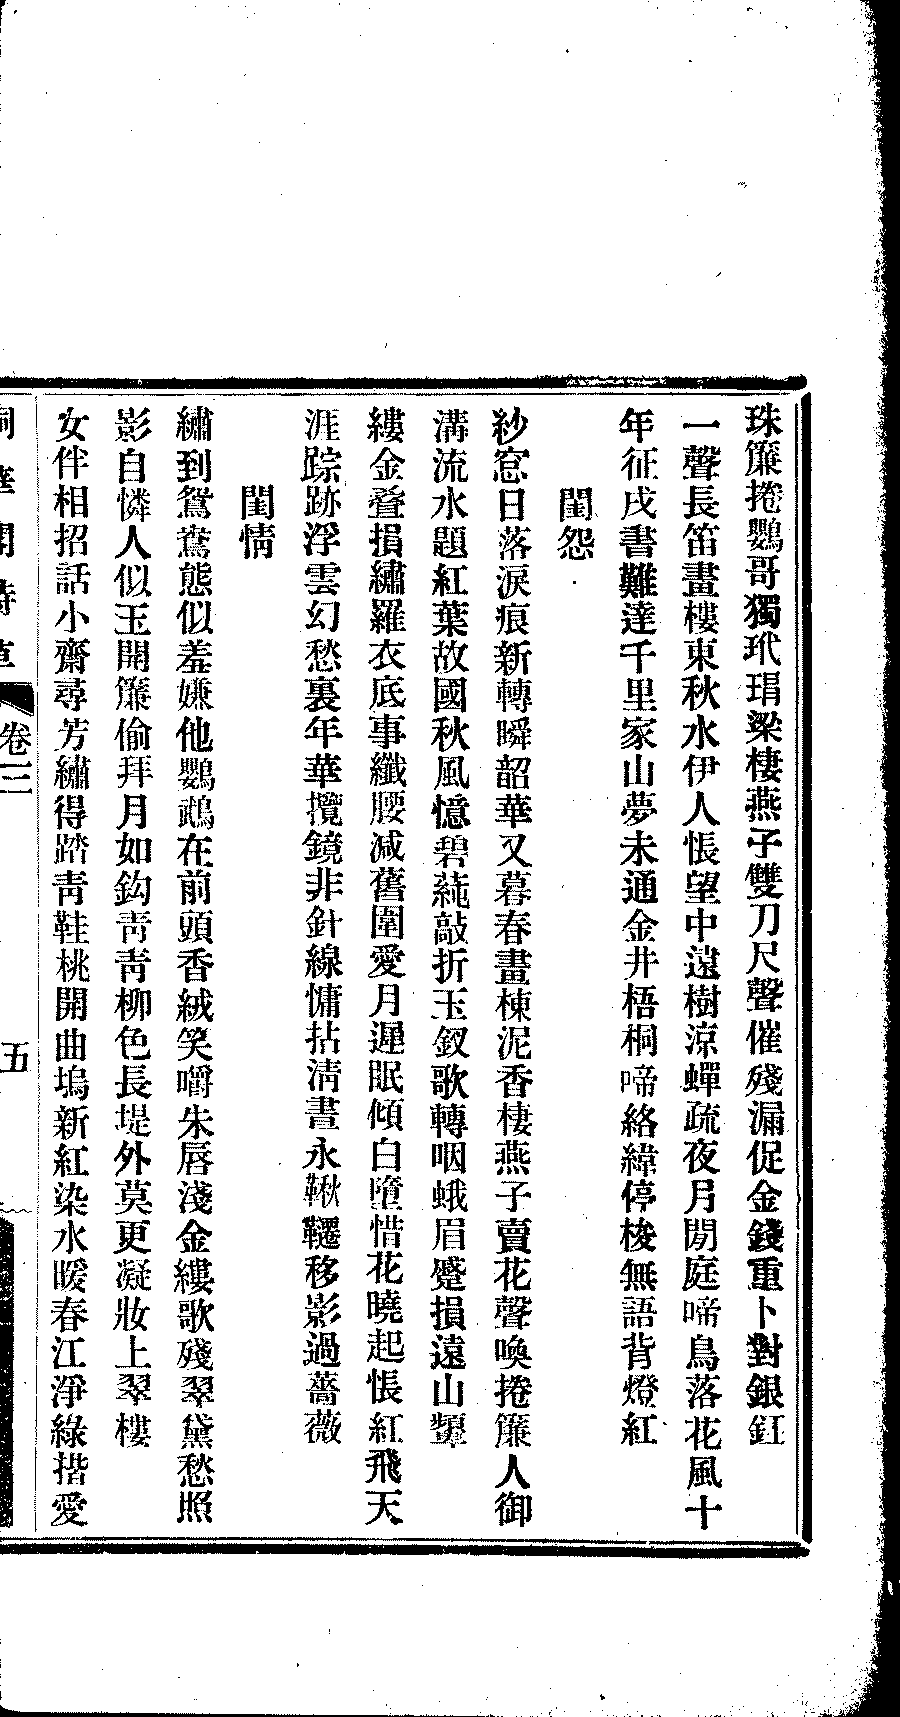 珠簾捲鸚哥獨玳瑁梁棲燕子雙刀尺聲催殘漏促金錢重卜對銀釭
一聲長笛畫樓東秋水伊人悵望中遠樹涼蟬疏夜月閒庭啼鳥落花風十
年征戍書難達千里家山夢未通金井梧桐啼絡緯停梭無語背燈紅
閨怨
紗窓日落淚痕新轉瞬韶華又暮春畫棟泥香棲燕子賣花聲喚捲簾人御
溝流水題紅葉故國秋風憶碧蒓敲折玉釵歌轉咽蛾眉蹙損遠山顰
縷金叠損繡羅衣底事纖腰减舊圍愛月遲眠傾白墮惜花曉起悵紅飛天
涯踪跡浮雲幻愁裏年華攬鏡非針線慵拈清晝永鞦韆移影過薔薇
閨情
繡到鴛鴦態似羞嫌他鸚鵡在前頭香絨笑嚼朱唇淺金縷歌殘翠黛愁照
影自憐人似玉開簾偷拜月如鈎青青柳色長堤外莫更凝妝上翠樓
女伴相招話小齋尋芳繡得踏青鞋桃開曲塢新紅染水暖春江淨綠揩愛
卷三
五